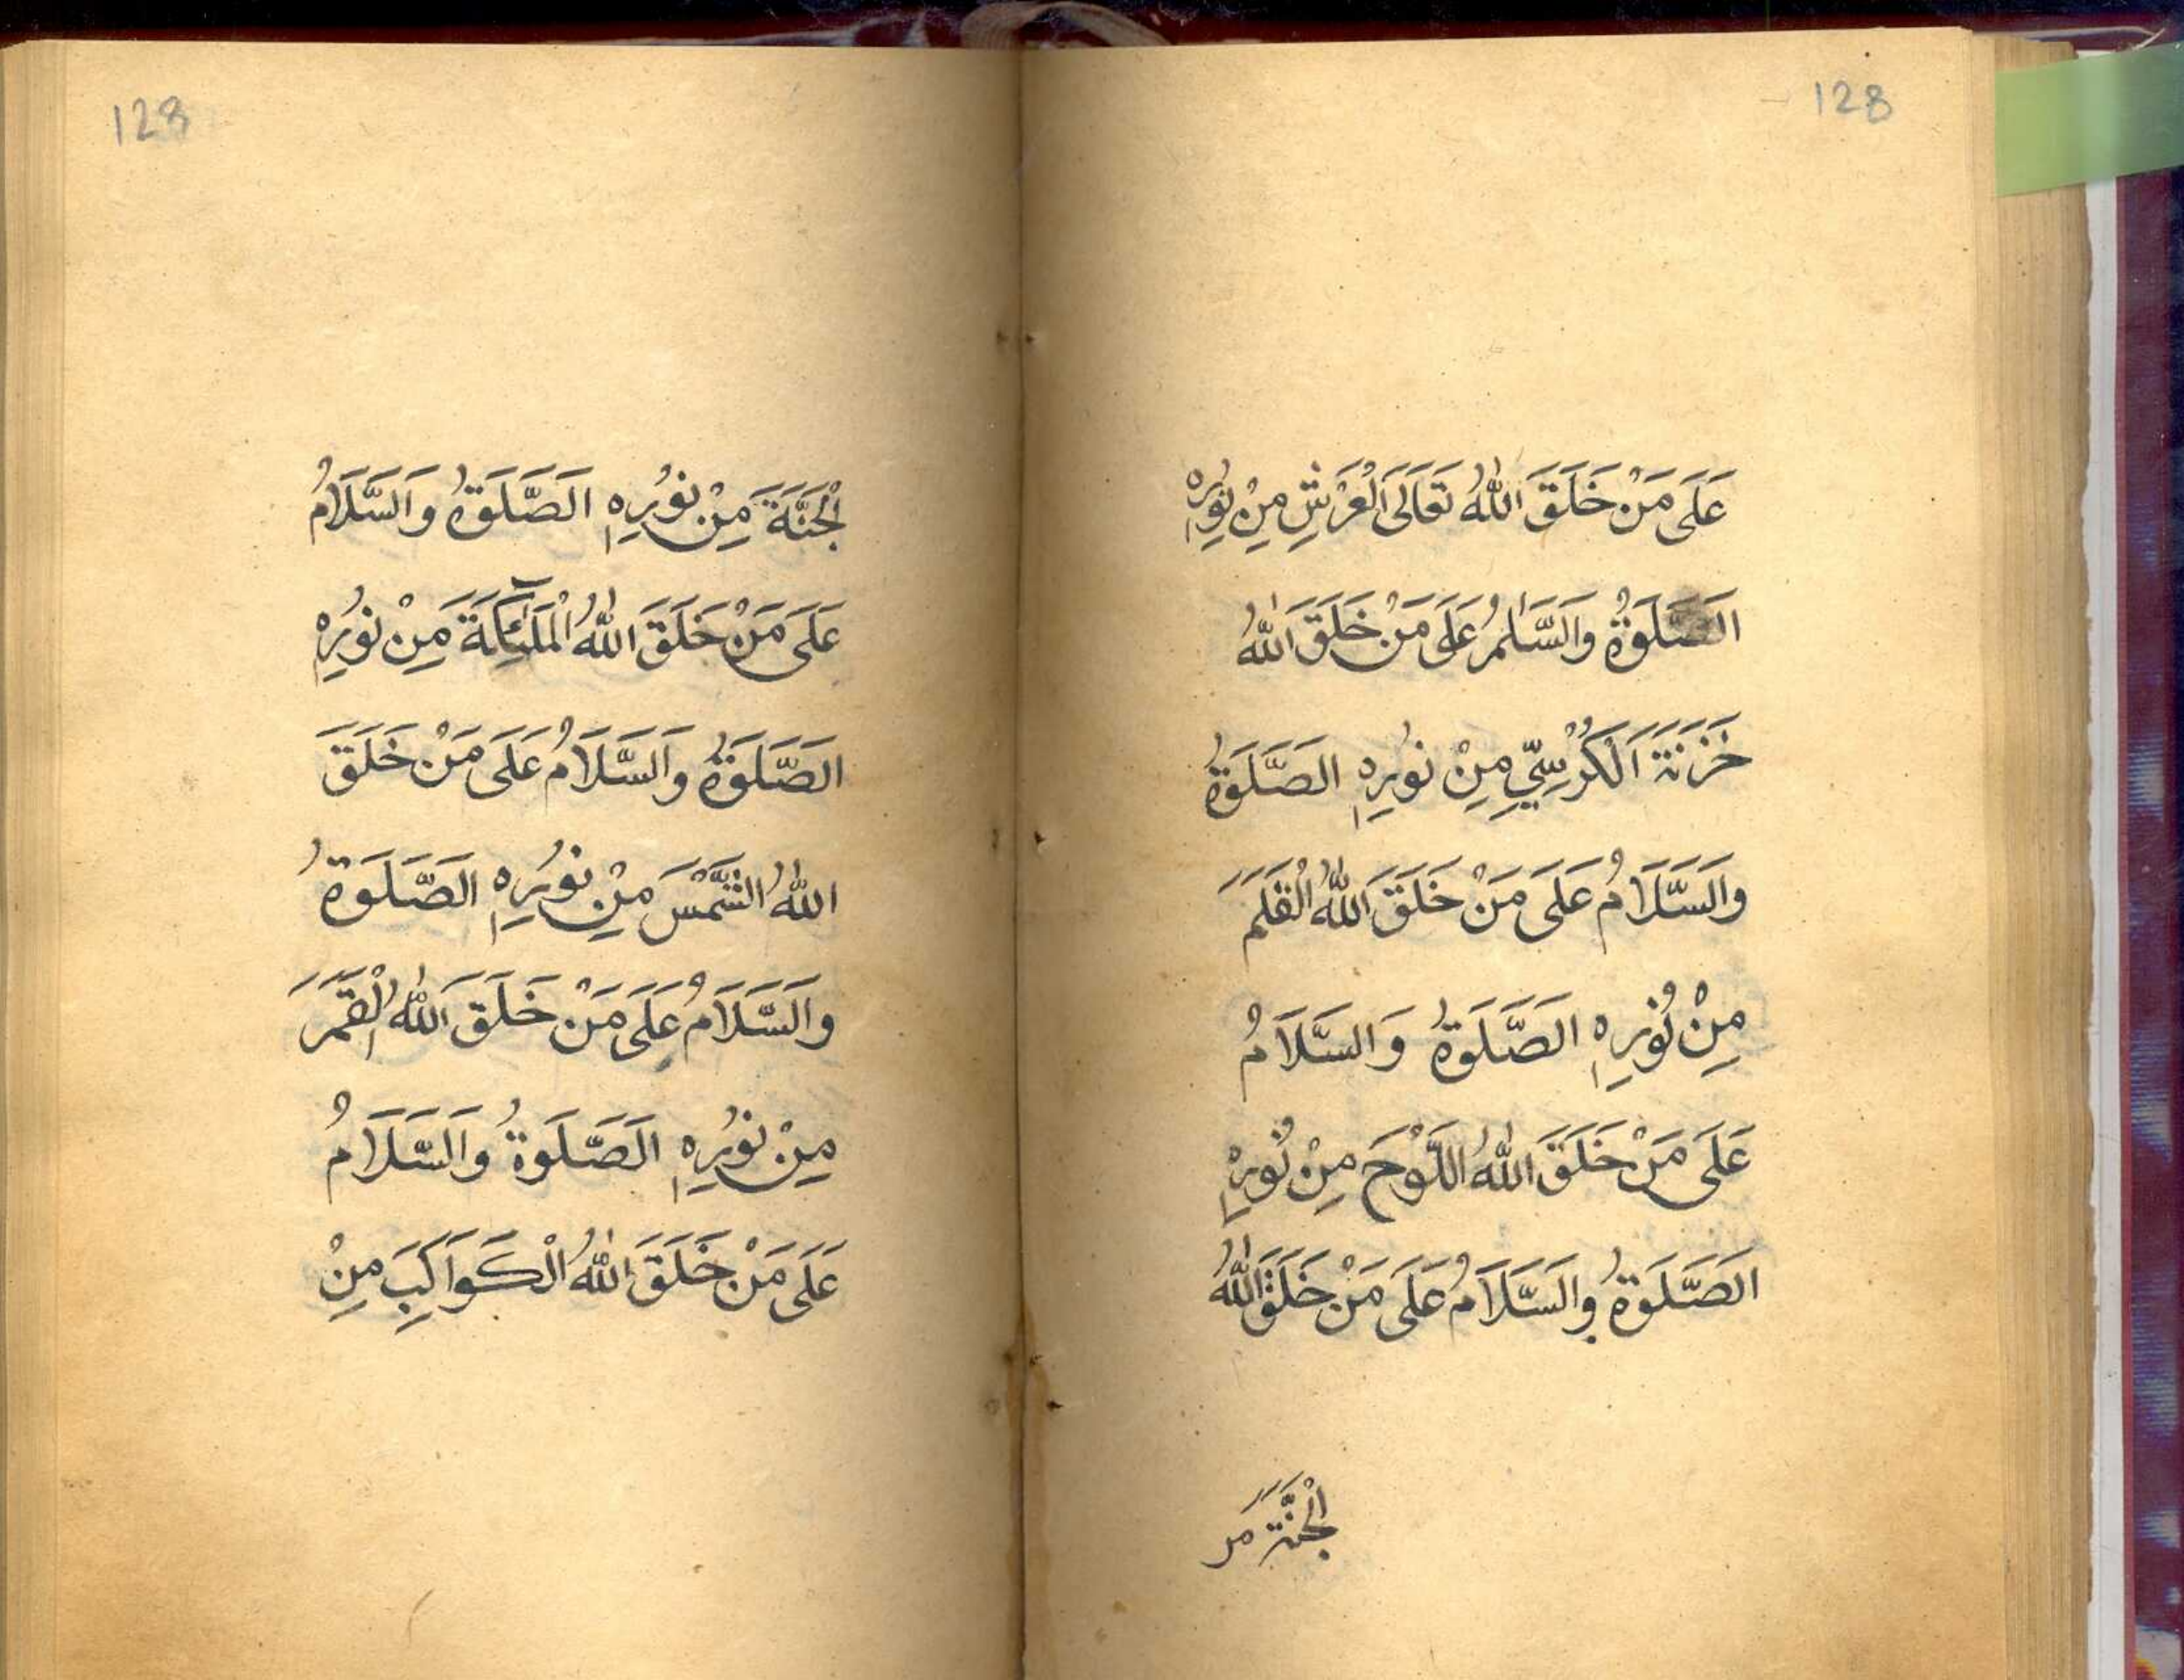 128
عَلَى مَنْ خَلَقَ اللّٰهُ تَعَالَى الْعَرْشِ مِنْ نُورِهِ
الصَّلَوةُ وَالسَّلٰمُ عَلَى مَنْ خَلَقَ اللّٰهُ
خَزَنَةَ الْكُرْسِيِّ مِنْ نُورِهِ الصَّلَوةُ
وَالسَّلَامُ عَلَى مَنْ خَلَقَ اللّٰهُ الْقَلَمَ
مِنْ نُورِهِ الصَّلَوةُ وَالسَّلَامُ
عَلَى مَنْ خَلَقَ اللّٰهُ اللَّوْحَ مِنْ نُورِهِ
الصَّلَوةُ وَالسَّلَامُ عَلَى مَنْ خَلَقَ اللّٰهُ
الْجَنَّةَ مر
128
الْجَنَّةَ مِنْ نُورِهِ الصَّلَوةُ وَالسَّلَامُ
عَلَى مَنْ خَلَقَ اللّٰهُ الْمَلٰئِكَةَ مِنْ نُورِهِ
الصَّلَوةُ وَالسَّلَامُ عَلَى مَنْ خَلَقَ
اللّٰهُ الشَّمْسَ مِنْ نُورِهِ الصَّلَوةُ
وَالسَّلَامُ عَلَى مَنْ خَلَقَ اللّٰهُ الْقَمَرَ
مِنْ نُورِهِ الصَّلَوةُ وَالسَّلَامُ
عَلَى مَنْ خَلَقَ اللّٰهُ الْكَوَاكِبَ مِنْ